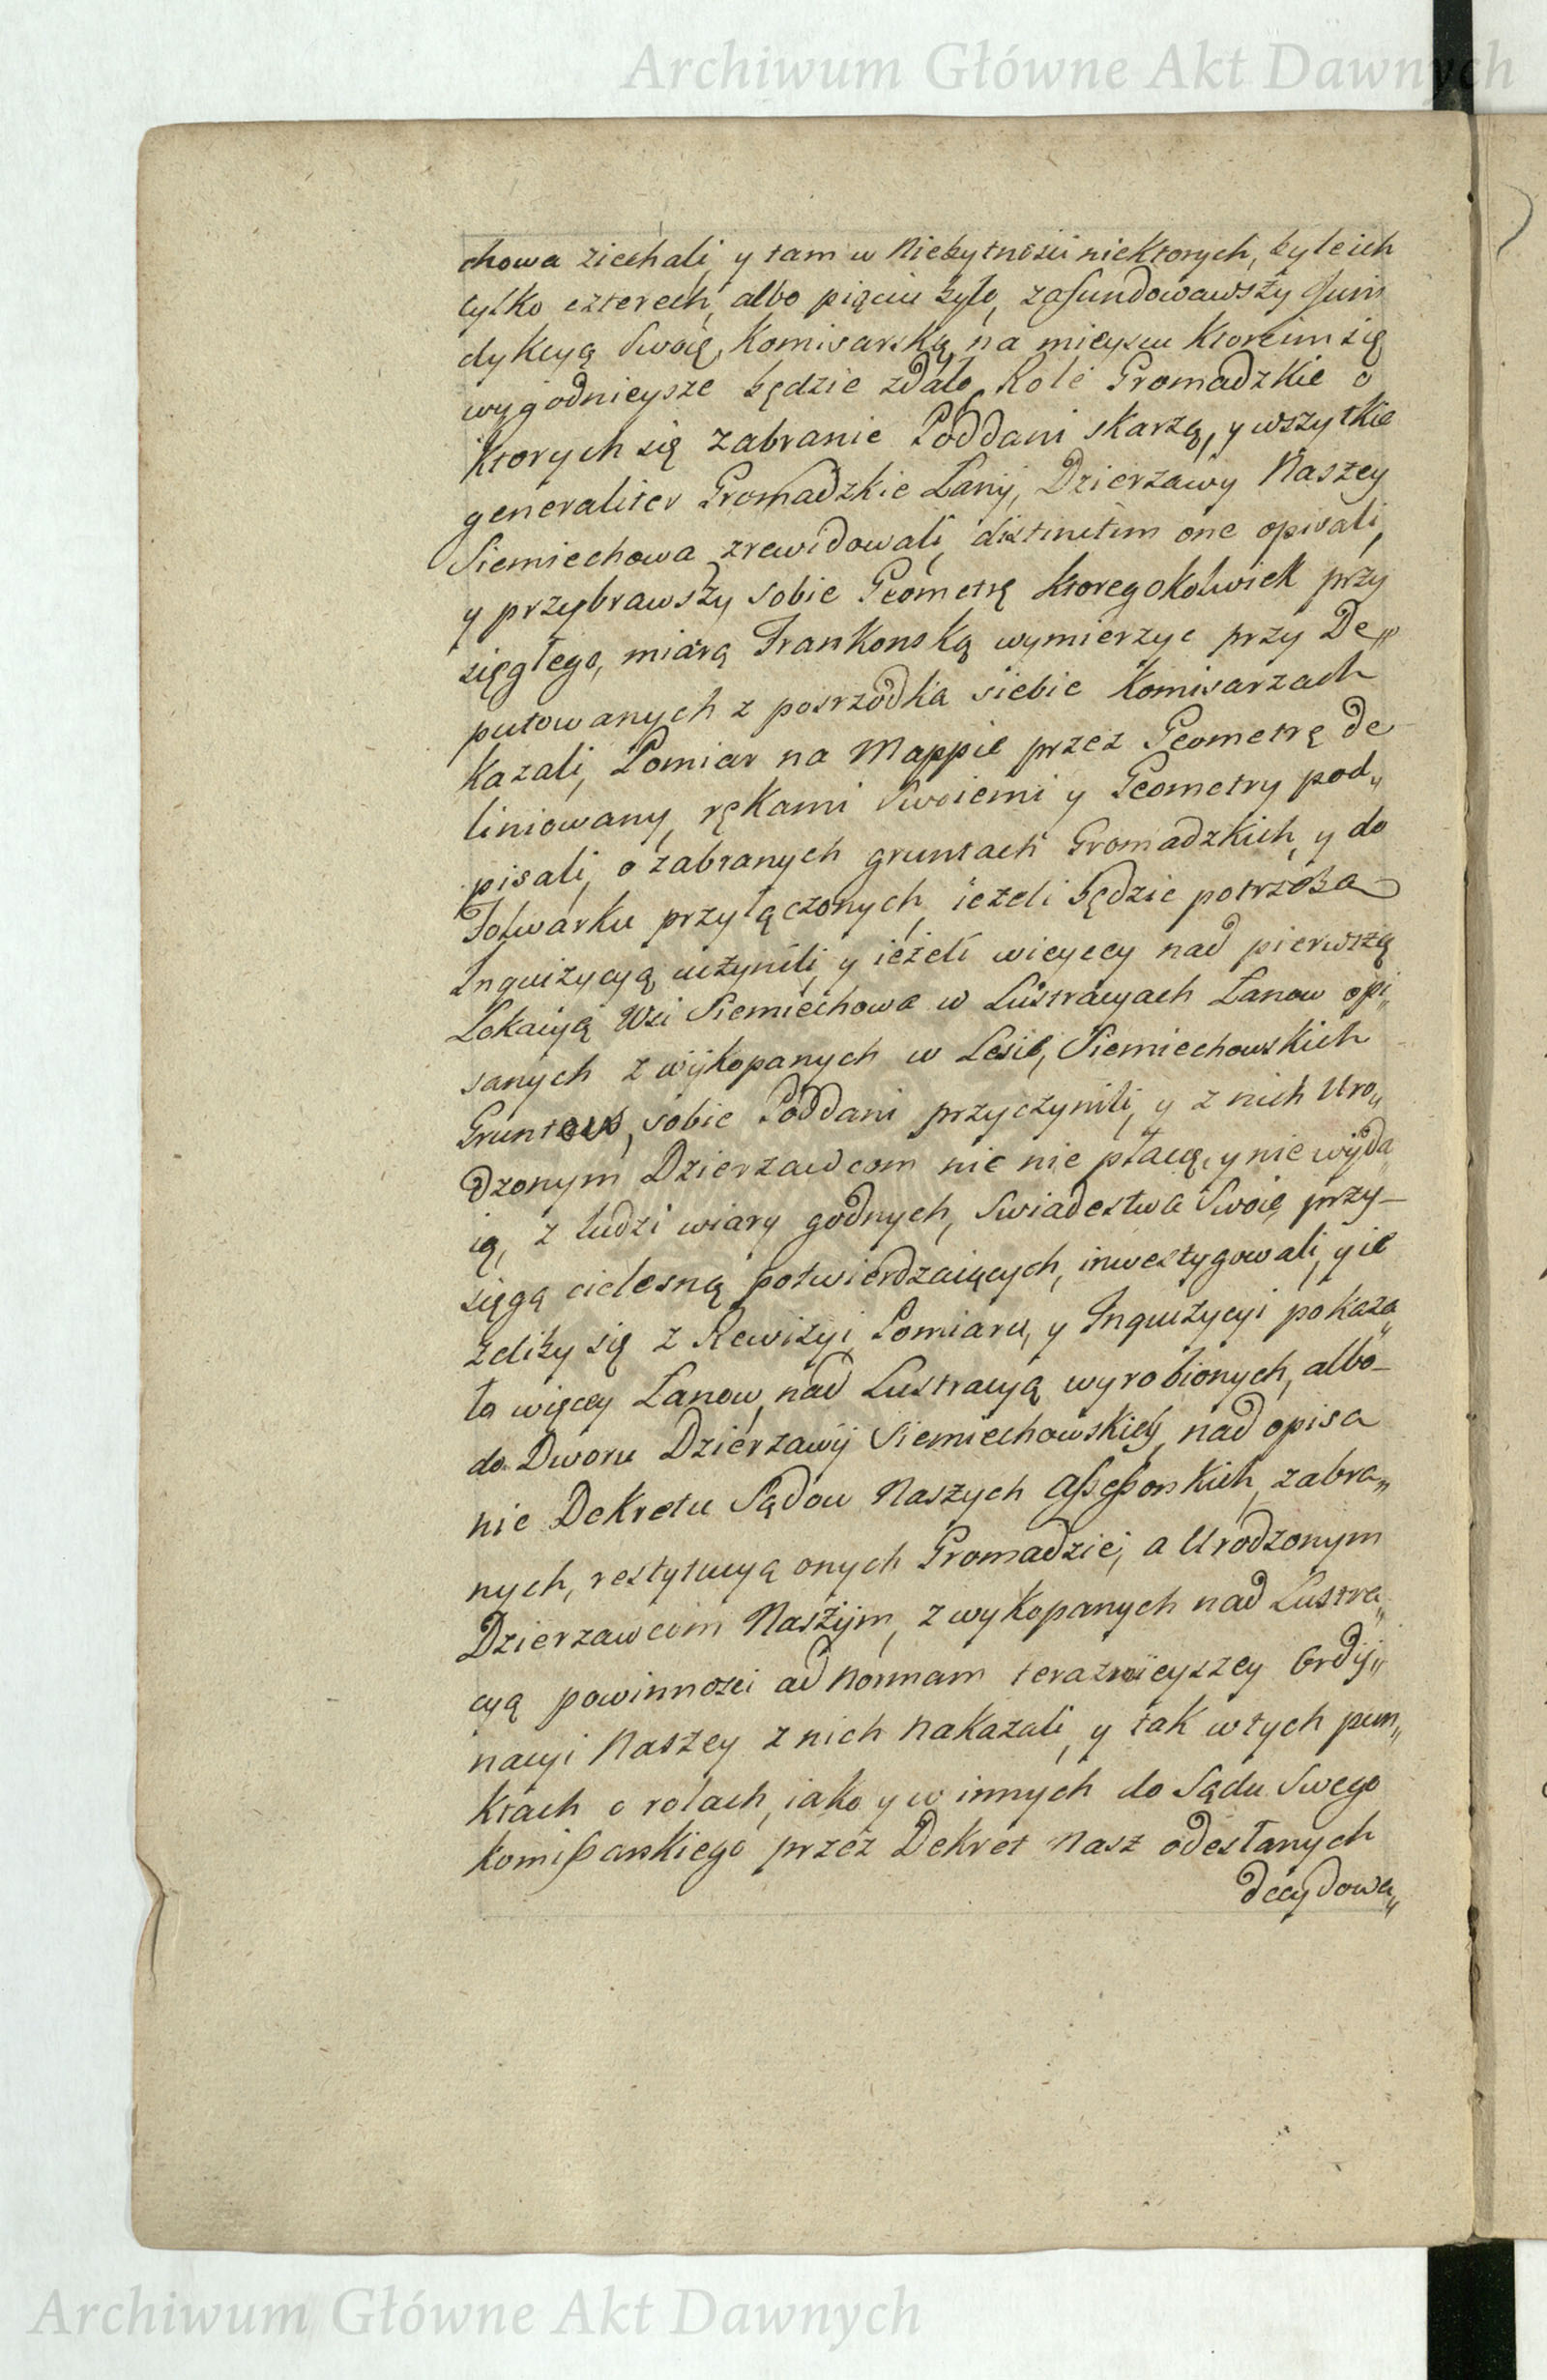 Archiwum Główne Akt Dawnych
chowa ziechali, y tam w Niebytności niektorych, byle ich
tylko czterech, albo pięciu było, zafundowawszy Juris
dykcyą Swoię, Komisarską, na mieyscu Ktore im się
wygodnieysze będzie zdało, Role Gromadzkie o
Ktorych się zabranie Poddani skarżą, y wszytkie
generaliter Gromadzkie Łany, Dzierzawy Naszey
Siemiechowa zrewidowali, distinctim one opisali,
y przybrawszy sobie Geometrę Ktoregokolwiek przy
sięgłego, miarą Frankonską wymierzyc przy De„
putowanych z posrzodka siebie Komisarzach
Kazali, Pomiar na Mappie przez Geometrę de
liniowany, rękami Swoiemi y Geometry pod„
pisali, o zabranych gruntach Gromadzkich, y do
Folwarku przyłączonych, ieżeli będzie potrzeba
Inquizycyą uczynili, y ieżeli wieycey nad pierwszą
Lokacyą Wsi Siemiechowa w Lustracyach Łanow opi„
sanych z wykopanych w Lesie, Siemiechowskich
Gruntow, sobie Poddani przyczynili, y z nich Uro„
dzonym Dzierzawcom nic nie płacą, y nie wyda„
ią, z ludzi wiary godnych, Swiadectwa Swoie przy-
sięgą cielesną potwierdzaiących, inwestygowali, y ie
żeliby się z Rewizyi, Pomiaru, y Inquizycyi pokaza„
ło więcey Łanow, nad Lustracyą wyrobionych, albo-
do Dworu Dzierzawy Siemiechowskiey, nad opisa
nie Dekretu Sądow Naszych Assessorskich, zabra„
nych, restytucyą onych Gromadzie, a Urodzonym
Dzierzawcom Naszym, z wykopanych nad Lustra„
cyą powinnosci ad Normam terazneyszey Ordy„
nacyi Naszey z nich Nakazali, y tak w tych pun„
ktach o rolach, iako y w innych do Sądu Swego
Komissarskiego przez Dekret Nasz odesłanych
decydowa„
Archiwum Główne Akt Dawnych